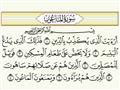 سُورَةُ المَاعُونِ
بِسْمِ ٱللَّهِ ٱلرَّحْمَٰنِ ٱلرَّحِيمِ
أَرَءَيْتَ ٱلَّذِى يُكَذِّبُ بِٱلدِّينِ ١ فَذَٰلِكَ ٱلَّذِى يَدُعُّ
ٱلْيَتِيمَ ٢ وَلَا يَحُضُّ عَلَىٰ طَعَامِ ٱلْمِسْكِينِ ٣ فَوَيْلٌ
لِّلْمُصَلِّينَ ٤ ٱلَّذِينَ هُمْ عَن صَلَاتِهِمْ سَاهُونَ ٥
ٱلَّذِينَ هُمْ يُرَآءُونَ ٦ وَيَمْنَعُونَ ٱلْمَاعُونَ ٧